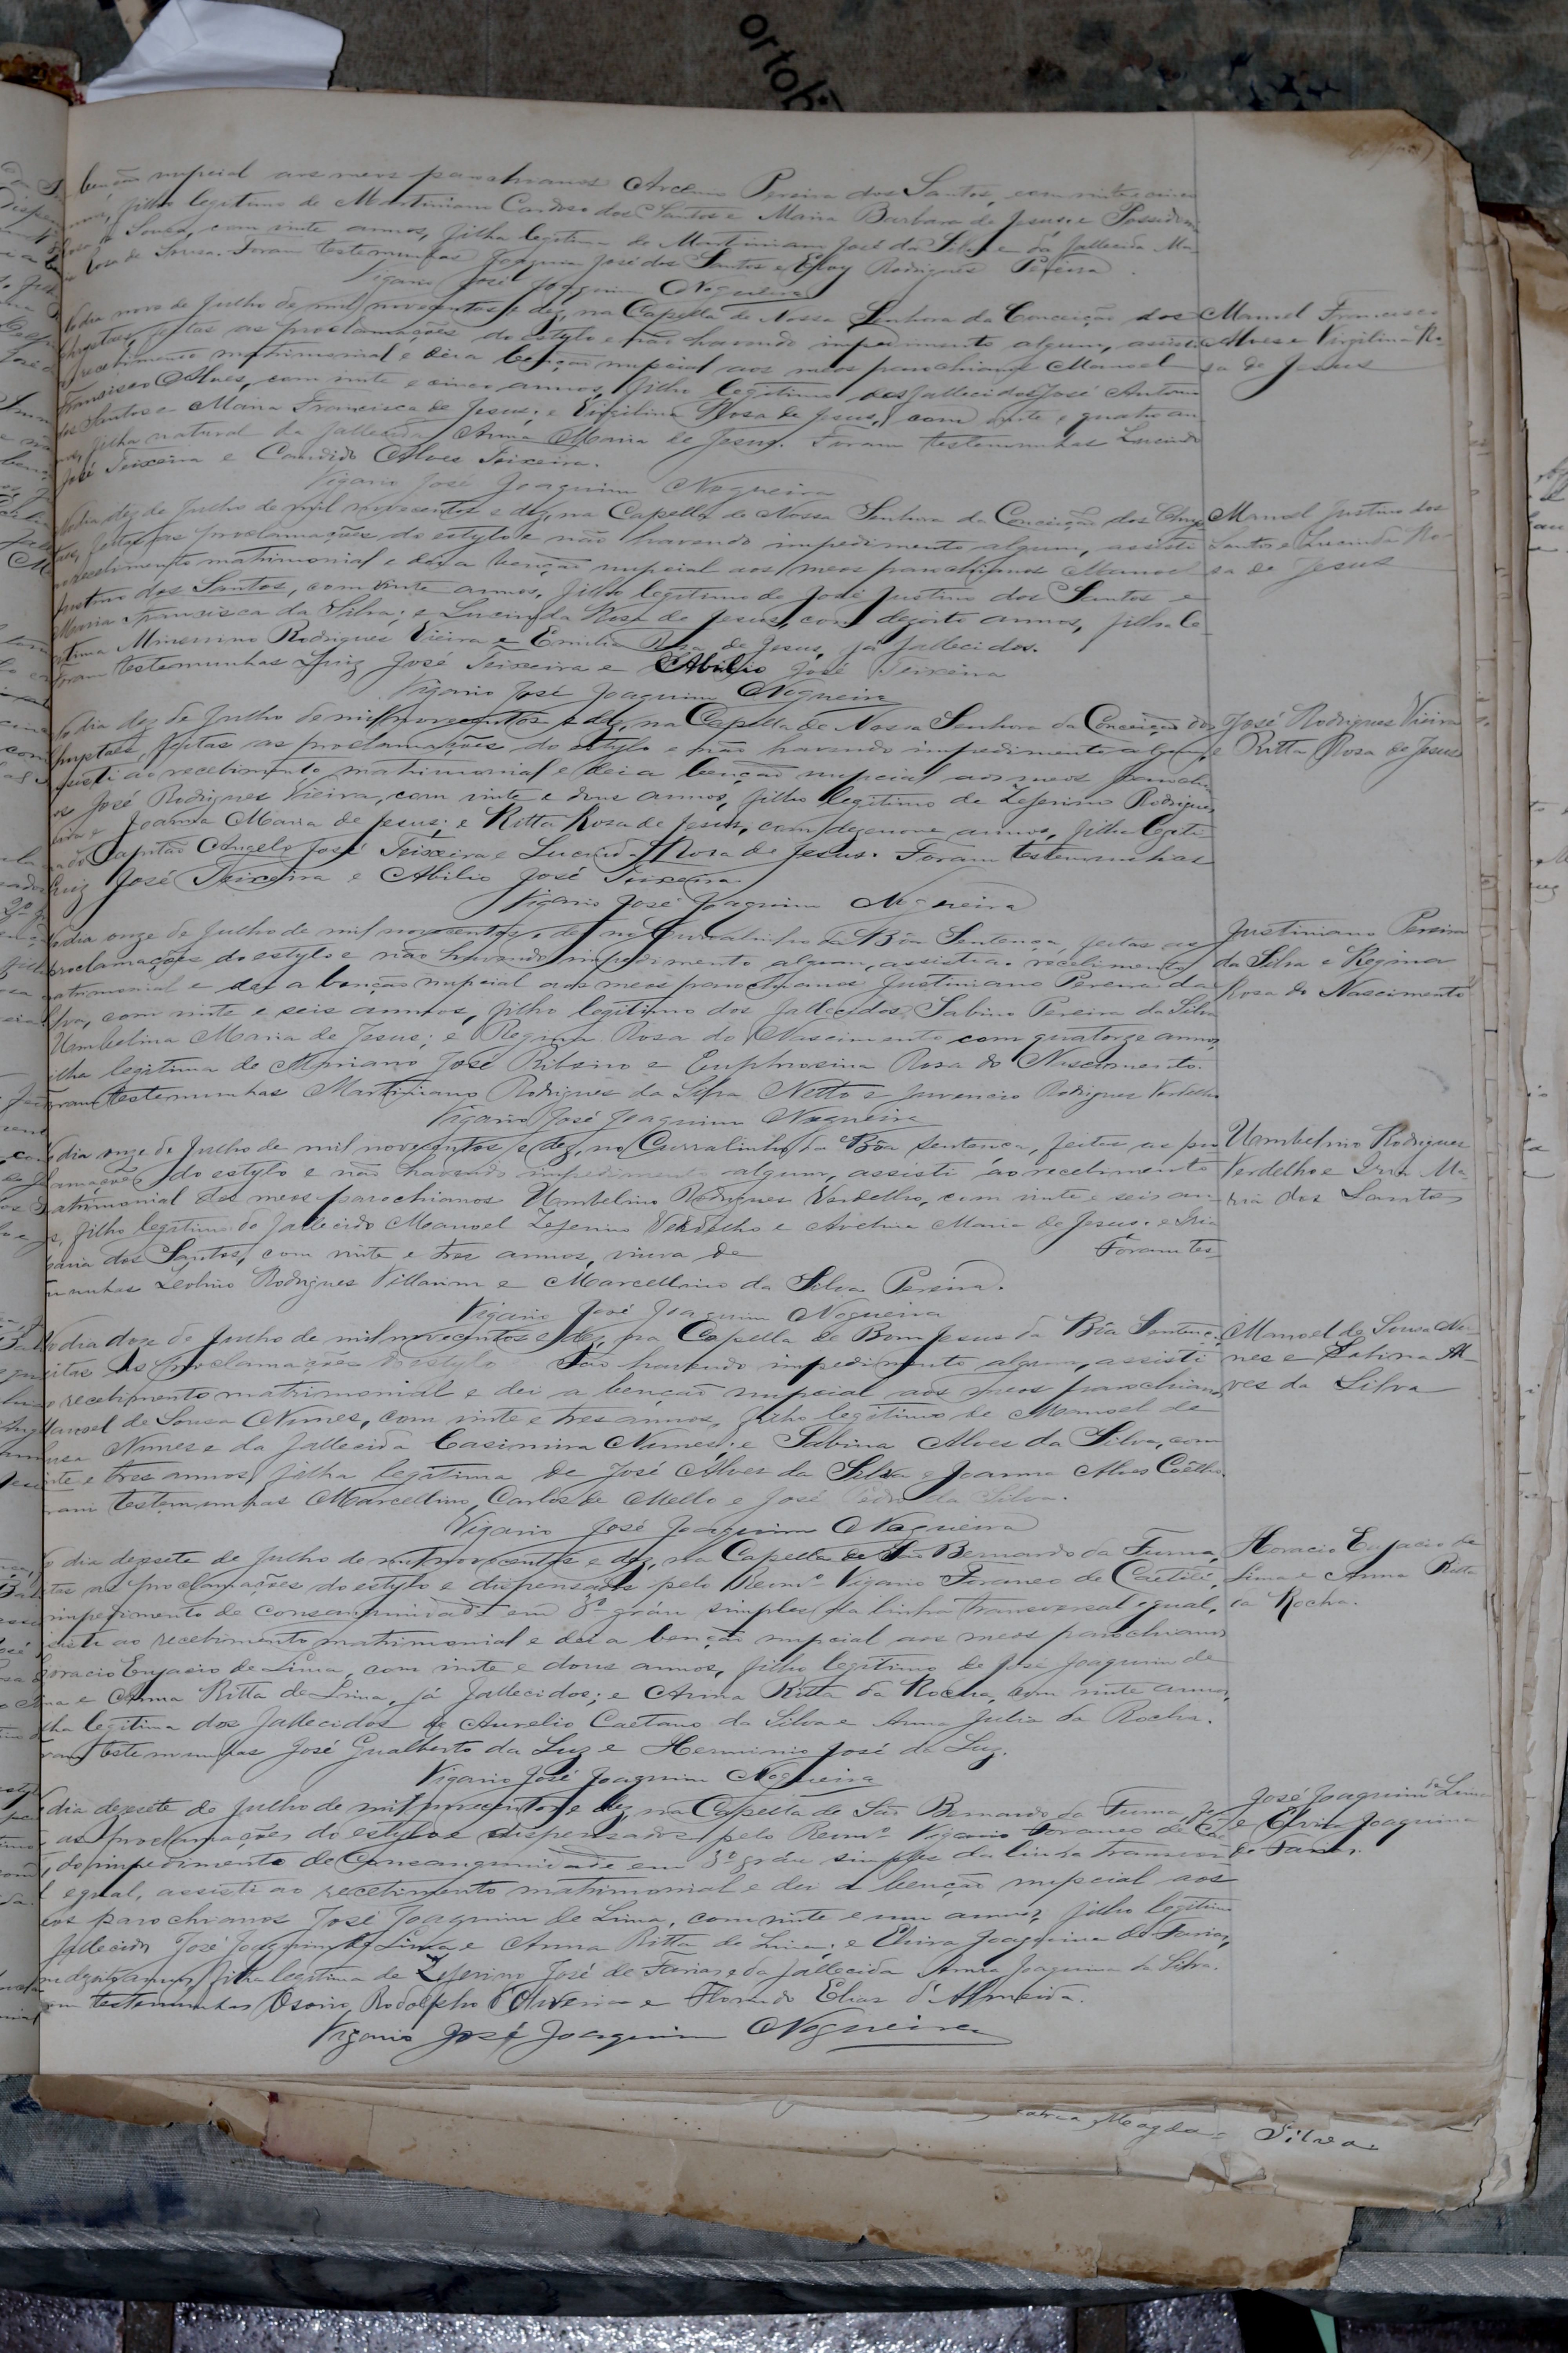 benção nupcial aos meos parochianos Arcenio Pereira dos Santos, com vinte e cinco
annos, filho legitimo de Martiniano Cardoso dos Santos e Maria Barbara de Jesus; e Possidonia
Rosa de Sousa, com vinte annos, filha legitima de Martiniano José da Silva e da fallecida Ma-
Rosa de Sousa. Foram testemunhas Joaquim José dos Santos e Eloy Rodrigues Pereira.
Vigario José Joaquim Nogueira
No dia nove de Julho de mil novecentos e dez, na Capella de Nossa Senhora da Conceição dos
feitas as proclamações do estylo e não havendo impedimento algum, assisti
ao recebimento matrimonial e dei a benção nupcial aos meos parochianos Manoel
Francisco Alves, com vinte e cinco annos, filho legitimo dos fallecidos José Antonio
dos Santos e Maria Francisca de Jesus; e Virgilina Rosa de Jesus, com vinte e quatro an-
nos, filha natural da fallecida Anna Maria de Jesus. Foram testemunhas Lucindo
José Teixeira e Candido Alves Teixeira.
Vigario José Joaquim Nogueira
Manoel Francisco
Alves e Virgilina Ro-
sa de Jesus
No dia dez de Julho de mil novecentos e dez, na Capella de Nossa Senhora da Conceição dos
feitas as proclamações do estylo e não havendo impedimento algum, assisti
ao recebimento matrimonial e dei a benção nupcial aos meos parochianos Manoel
Justino dos Santos, com vinte annos, filho legitimo de José Justino dos Santos e
Maria Francisca da Silva; e Lucinda Rosa de Jesus, com dezoito annos, filha le-
gitima Minervino Rodrigues Vieira e Emilia Rosa de Jesus, já fallecidos.
Foram testemunhas Luiz José Teixeira e Abilio José Teixeira
Vigario José Joaquim Nogueira
Manoel Justino dos
Santos e Lucinda Ro-
sa de Jesus
No dia dez de Julho de mil novecentos e dez, na Capella de Nossa Senhora da Conceição dos
feitas as proclamações do estylo e não havendo impedimento algum,
assisti ao recebimento matrimonial e dei a benção nupcial aos meos parochia-
nos José Rodrigues Vieira, com vinte e dous annos, filho legitimo de Zeferino Rodrigues
Vieira e Joanna Maria de Jesus; e Ritta Rosa de Jesus, com dezenove annos, filha legiti-
ma do Capitão Angelo José Teixeira e Lucinda Rosa de Jesus. Foram testemunhas
Luiz José Teixeira e Abilio José Teixeira
Vigario José Joaquim Nogueira
José Rodrigues Vieira
e Ritta Rosa de Jesus
No dia onze de Julho de mil novecentos e dez, no Curralinho da Bôa Sentença, feitas as
proclamações do estylo e não havendo impedimento algum, assisti ao recebimento
matrimonial e dei a benção nupcial aos meos parochianos Justiniano Pereira da
Silva, com vinte e seis annos, filho legitimo dos fallecidos Sabino Pereira da Silva
Umbelina Maria de Jesus; e Regina Rosa do Nascimento com quatorze annos,
filha legitima de Cypriano José Ribeiro e Euphrosina Rosa do Nascimento.
Foram testemunhas Martiniano Rodrigues da Silva Netto e Juvencio Rodrigues Verdelho
Vigario José Joaquim Nogueira
Justiniano Pereira
da Silva e Regina
Rosa do Nascimento
No dia onze de Julho de mil novecentos e dez, no Curralinho da Bôa Sentença, feitas as pro-
clamações do estylo e não havendo impedimento algum, assisti ao recebimento
matrimonial dos meos parochianos Umbelino Rodrigues Verdelho, com vinte e seis an-
nos, filho legitimo do fallecido Manoel Zeferino Verdelho e Avelina Maria de Jesus; e Iria
Maria dos Santos, com vinte e tres annos, viuva de Foram tes-
temunhas Leolino Rodrigues Villarim e Marcellino da Silva Pereira.
Vigario José Joaquim Nogueira
Umbelino Rodrigues
Verdelho e Iria Ma-
ria dos Santos
No dia doze de Julho de mil novecentos e dez, na Capella de Bom Jesus da Bôa Sentença,
feitas as proclamações do estylo não havendo impedimento algum, assisti
ao recebimento matrimonial e dei a benção nupcial aos meos parochianos
Manoel de Sousa Nunes, com vinte e tres annos, filho legitimo de Manoel de
Sousa Nunes e da fallecida Casimira Nunes; e Sabina Alves da Silva, com
vinte e tres annos, filha legitima de José Alves da Silva e Joanna Alves Coêlho.
Foram testemunhas Marcellino Carlos de Mello e José Pedro da Silva.
Vigario José Joaquim Nogueira
Manoel de Sousa Nu-
nes e Sabina Al-
ves da Silva
No dia dezesete de Julho de mil novecentos e dez, na Capella de São Bernardo da Furna,
feitas as proclamações do estylo e dispensados pelo Revmº Vigario Foraneo de Caetité,
impedimento de consanguinidade em 3º gráu simples da linha transversal egual,
assisti ao recebimento matrimonial e dei a benção nupcial aos meos parochianos
Horacio Enjacio de Lima, com vinte e dous annos, filho legitimo de José Joaquim de
Lima e Anna Ritta de Lima, já fallecidos; e Anna Ritta da Rocha, com vinte annos,
filha legitima dos fallecidos de Aurelio Caetano da Silva e Anna Julia da Rocha.
Foram testemunhas José Gualberto da Luz e Herminio José da Luz.
Vigario José Joaquim Nogueira
Horacio Enjacio de
Lima e Anna Ritta
da Rocha.
No dia dezesete de Julho de mil novecentos e dez, na Capella de São Bernardo da Furna, fei-
tas as proclamações do estylo e dispensados pelo Revmº Vigario Foraneo de Cae-
do impedimento de consanguinidade em 3º gráu simples da linha transver-
sal egual, assisti ao recebimento matrimonial e dei a benção nupcial aos
meos parochianos José Joaquim de Lima, com vinte e um annos, filho legitimo
fallecidos José Joaquim de Lima e Anna Ritta de Lima; e Elvira Joaquina de Farias,
com dezoito annos, filha legitima de Zeferino José de Farias e da fallecida Anna Joaquina da Silva.
Foram testemunhas Osorio Rodolpho d'Oliveira e Florindo Elias d'Almeida.
Vigario José Joaquim Nogueira
José Joaquim de Lima
e Elvira Joaquina
de Farias.
Silva
ortobi